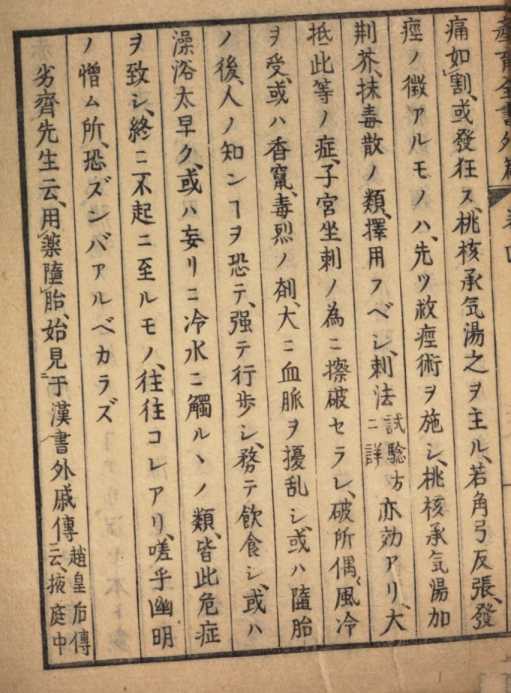 産育全書外篇
痛如割、或發狂ス、桃核承気湯之ヲ主ル、若角弓反張、發
痙ノ徴アルモノハ、先ツ救痙術ヲ施シ、桃核承気湯加
荆芥、抹毒散ノ類、擇用フベシ、刺法試驗方ニ詳亦効アリ、大
抵此等ノ症、子宮坐刺ノ為ニ擦破セラレ、破所偶〻風冷
ヲ受、或ハ香竄、毒烈ノ剤、大ニ血脈ヲ擾乱シ、或ハ墮胎
ノ後、人ノ知ンヿヲ恐テ、强テ行歩シ、務テ飲食シ、或ハ
澡浴太早ク、或ハ妄リニ冷水ニ觸ルヽノ類、皆此危症
ヲ致シ、終ニ不起ニ至ルモノ、往往コレアリ、嗟乎幽明
ノ憎ム所、恐ズンバアルベカラズ
劣齊先生云、用藥墮胎、始見于漢書外戚傳趙皇后傳云、掖庭中